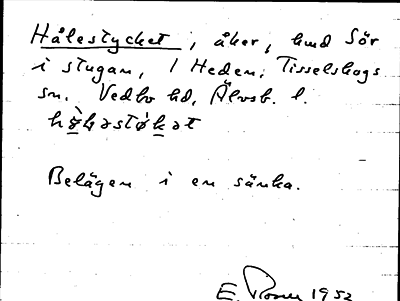 Hålestycket, åker, hmd Sör
i stugan, 1 Heden, Tisselskogs
sn. Vedbo hd, Älvsb. l.
Belägen i en sänka.
E. 1952